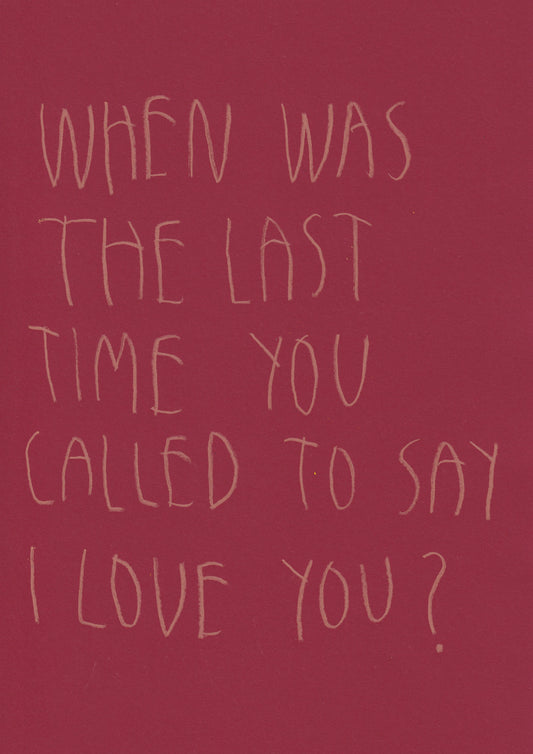 WHEN WAS
THE LAST
TIME YOU
CALLED TO SAY
I LOVE YOU?